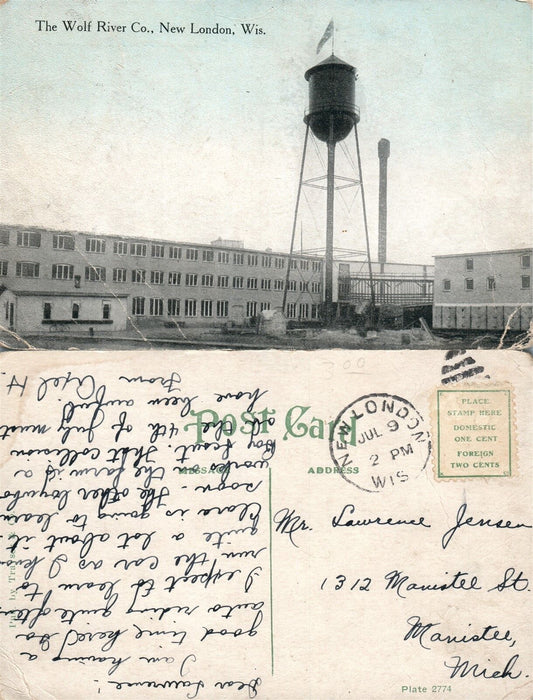 The Wolf River Co., New London, Wis.
Post Card
MESSAGE
ADDRESS
PLACE
STAMP HERE
DOMESTIC
ONE CENT
FOREIGN
TWO CENTS
NEW LONDON
JUL 9
2 PM
WIS
Dear Lawrence:
I am having a
good time here. Go
auto riding quite often
I expect to learn to
run the car as I know
quite a lot about it.
Clare is going to learn
soon. The other
works on the farm is a
Boy Scout. That collision
of the 4th of July must
have been awful.
From Axel H.
Mr. Lawrence Jensen
1312 Manistee St.
Manistee,
Mich.
Plate 2774
300